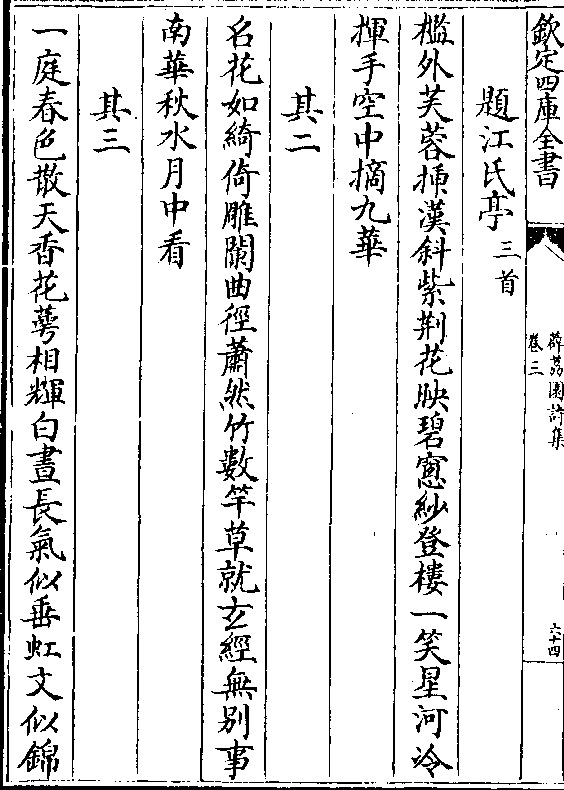 欽定四庫全書
薜荔園詩集
卷三
六十四
題江氏亭三首
檻外芙蓉挿漢斜紫荆花映碧窻紗登樓一笑星河冷
揮手空中摘九華
其二
名花如綺倚雕闌曲徑蕭然竹數竿草就玄經無别事
南華秋水月中看
其三
一庭春色散天香花萼相輝白晝長氣似垂虹文似錦